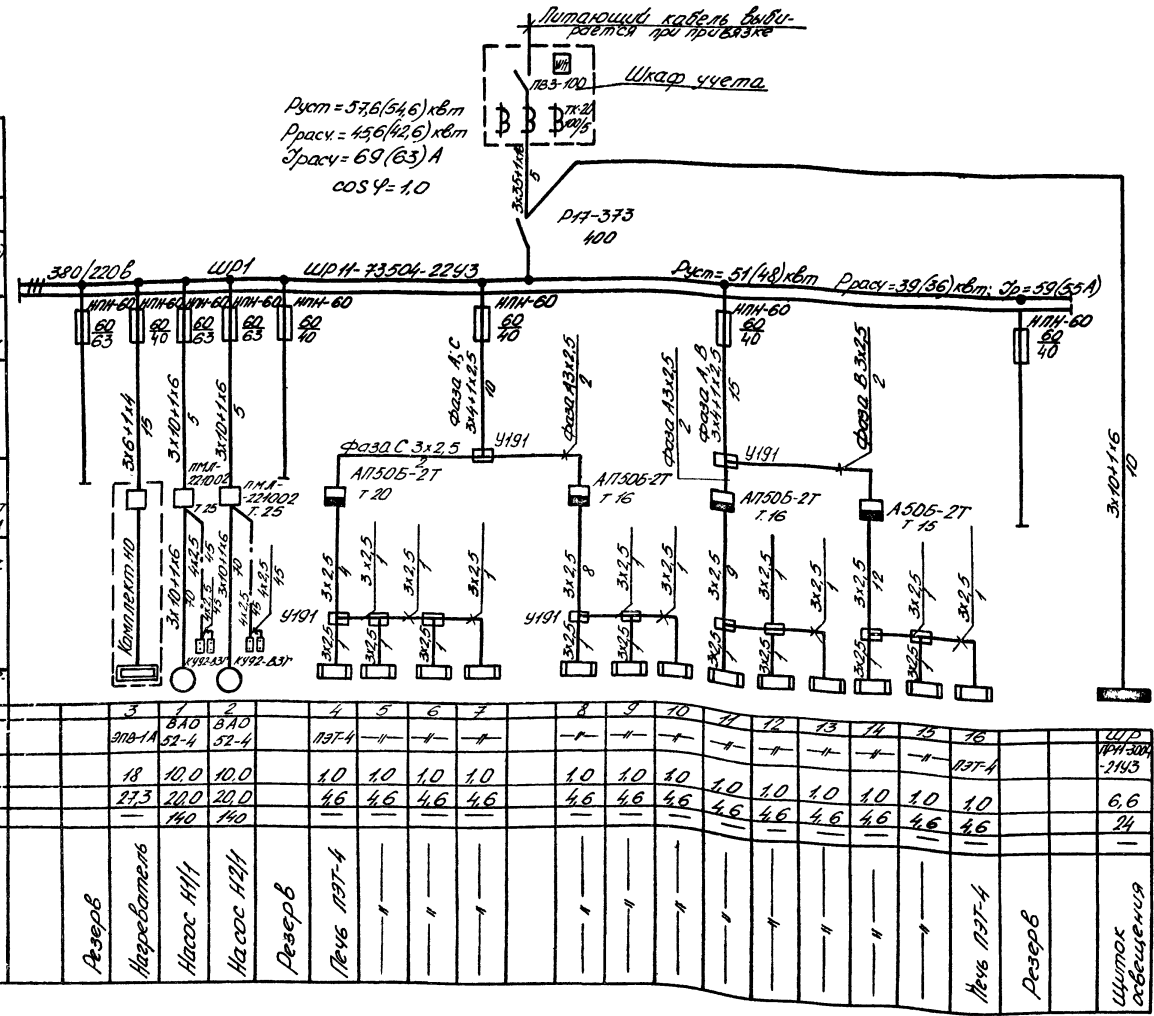 Питающий кабель выби-
рается при привязке
Шкаф учета
ПВЗ-100
ТК-20
100/5
Руст = 57,6(54,6) квт
Ррасч. = 45,6(42,6) квт
Iрасч = 69 (63) А
cos φ = 1,0
3х35+1х16
5
Р17-373
400
380/220в
ШР1
ШР11-73504-22У3
Руст = 51(48) квт
Ррасч = 39(36) квт; Iр = 59(55А)
НПН-60 НПН-60 НПН-60 НПН-60 НПН-60 НПН-60 НПН-60 НПН-60
60/63 60/40 60/63 60/63 60/40 60/40 60/40 60/40
3х6+1х4
15
3х10+1х6
5
3х10+1х6
5
фаза А, С
3х4+1х2,5
10
фаза А 3х2,5
2
фаза А 3х2,5
2
фаза А, В
3х4+1х2,5
15
фаза В 3х2,5
2
3х10+1х6
10
фаза С 3х2,5
2
У191
У191
ПМЛ-
221002
Т.25
ПМЛ-
-221002
Т.25
АП50Б-2Т
Т 20
АП50Б-2Т
Т 16
АП50Б-2Т
Т.16
А50Б-2Т
Т 15
Комплектно
3х10+1х6
70
4х2,5
45
4х2,5
45
3х10+1х6
70
4х2,5
45
4х2,5
45
КУ92-ВЗГ КУ92-ВЗГ
3х2,5 4
3х2,5 1
3х2,5 1
3х2,5 1
3х2,5 8
3х2,5 1
3х2,5 1
3х2,5 9
3х2,5 1
3х2,5 1
3х2,5 12
3х2,5 1
3х2,5 1
У191
У191
3х2,5 1
3х2,5 1
3х2,5 1
3х2,5 1
3х2,5 1
3х2,5 1
3х2,5 1
3х2,5 1
3х2,5 1
3 1 2 4 5 6 7 8 9 10 11 12 13 14 15 16 ШР
ЭПВ-1А ВАО 52-4 ВАО 52-4 ПЭТ-4 –〃– –〃– –〃– –〃– –〃– –〃– –〃– –〃– –〃– –〃– –〃– ПЭТ-4 ПР11-3004 -21У3
18 10,0 10,0 1,0 1,0 1,0 1,0 1,0 1,0 1,0 1,0 1,0 1,0 1,0 1,0 1,0 6,6
27,3 20,0 20,0 4,6 4,6 4,6 4,6 4,6 4,6 4,6 4,6 4,6 4,6 4,6 4,6 4,6 24
— 140 140 — — — — — — — — — — — — — —
Резерв
Нагреватель
Насос Н1/1
Насос Н2/1
Резерв
Печь ПЭТ-4
–〃– –〃– –〃– –〃– –〃– –〃– –〃– –〃– –〃– –〃– –〃–
Печь ПЭТ-4
Резерв
Щиток
освещения